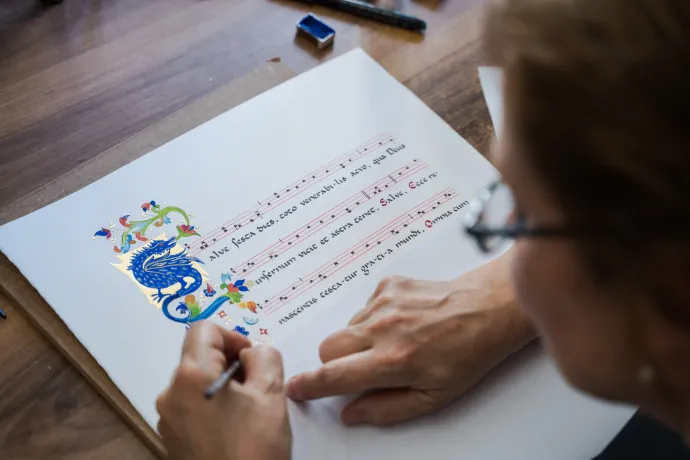 alve festa dies, toto venerabi-lis aevo, qua Deus
infernum vicit et astra tenet. Salve. Ecce re-
nascentis testa-tur gra-ti-a mundi, Omnia cum